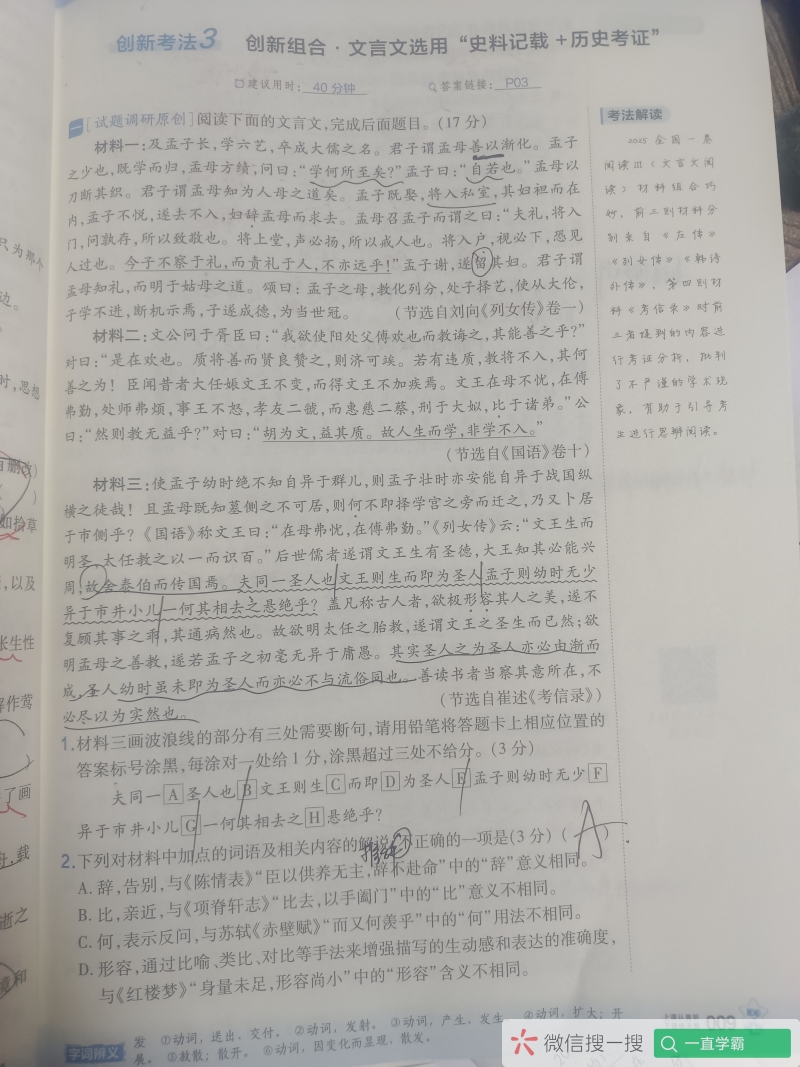 创新考法3 创新组合·文言文选用“史料记载+历史考证”
建议用时：40分钟 答案链接：P03
一 [试题调研原创]阅读下面的文言文，完成后面题目。(17分)
材料一：及孟子长，学六艺，卒成大儒之名。君子谓孟母善以渐化。孟子
之少也，既学而归，孟母方绩，问曰：“学何所至矣？”孟子曰：“自若也。”孟母以
刀断其织。君子谓孟母知为人母之道矣。孟子既娶，将入私室，其妇袒而在
内，孟子不悦，遂去不入，妇辞孟母而求去。孟母召孟子而谓之曰：“夫礼，将入
门，问孰存，所以致敬也。将上堂，声必扬，所以戒人也。将入户，视必下，恐见
人过也。今子不察于礼，而责礼于人，不亦远乎！”孟子谢，遂留其妇。君子谓
孟母知礼，而明于姑母之道。颂曰：孟子之母，教化列分，处子择艺，使从大伦，
子学不进，断机示焉，子遂成德，为当世冠。 (节选自刘向《列女传》卷一)
材料二：文公问于胥臣曰：“我欲使阳处父傅欢也而教诲之，其能善之乎？”
对曰：“是在欢也。质将善而贤良赞之，则济可竢。若有违质，教将不入，其何
善之为！臣闻昔者大任娠文王不变，而得文王不加疾焉。文王在母不忧，在傅
弗勤，处师弗烦，事王不怒，孝友二虢，而惠慈二蔡，刑于大姒，比于诸弟。”公
曰：“然则教无益乎？”对曰：“胡为文，益其质。故人生而学，非学不入。”
(节选自《国语》卷十)
材料三：使孟子幼时绝不知自异于群儿，则孟子壮时亦安能自异于战国纵
横之徒哉！且孟母既知墓侧之不可居，则何不即择学宫之旁而迁之，乃又卜居
于市侧乎？《国语》称文王曰：“在母弗忧，在傅弗勤。”《列女传》云：“文王生而
明圣，太任教之以一而识百。”后世儒者遂谓文王生有圣德，大王知其必能兴
周，故舍泰伯而传国焉。夫同一圣人也文王则生而即为圣人孟子则幼时无少
异于市井小儿一何其相去之悬绝乎？盖凡称古人者，欲极形容其人之美，遂不
复顾其事之乖，其通病然也。故欲明太任之胎教，遂谓文王之圣生而已然；欲
明孟母之善教，遂若孟子之初毫无异于庸愚。其实圣人之为圣人亦必由渐而
成，圣人幼时虽未即为圣人而亦必不与流俗同也。善读书者当察其意所在，不
必尽以为实然也。 (节选自崔述《考信录》)
1.材料三画波浪线的部分有三处需要断句，请用铅笔将答题卡上相应位置的
答案标号涂黑，每涂对一处给1分，涂黑超过三处不给分。(3分)
夫同一A圣人也B文王则生C而即D为圣人E孟子则幼时无少F
异于市井小儿G一何其相去之H悬绝乎？
2.下列对材料中加点的词语及相关内容的解说，不正确的一项是(3分) ( A )
A.辞，告别，与《陈情表》“臣以供养无主，辞不赴命”中的“辞”意义相同。
B.比，亲近，与《项脊轩志》“比去，以手阖门”中的“比”意义不相同。
C.何，表示反问，与苏轼《赤壁赋》“而又何羡乎”中的“何”用法不相同。
D.形容，通过比喻、类比、对比等手法来增强描写的生动感和表达的准确度，
与《红楼梦》“身量未足，形容尚小”中的“形容”含义不相同。
字词辨义 发 ①动词，送出，交付。②动词，发射。③动词，产生，发生。④动词，扩大；开
展。⑤散；散开。⑥动词，因变化而显现，散发。
009
考法解读
2025全国一卷
阅读Ⅲ(文言文阅
读)材料组合巧
妙，前三则材料分
别来自《左传》
《列女传》《韩诗
外传》，第四则材
料《考信录》对前
三者提到的内容进
行考证分析，批判
了不严谨的学术现
象，有助于引导考
生进行思辨阅读。
只为那个
边。
时，思想
自删改)
如拾草
，以及
长生性
作莺
了画
，载
逝之
和
微信搜一搜 一直学霸